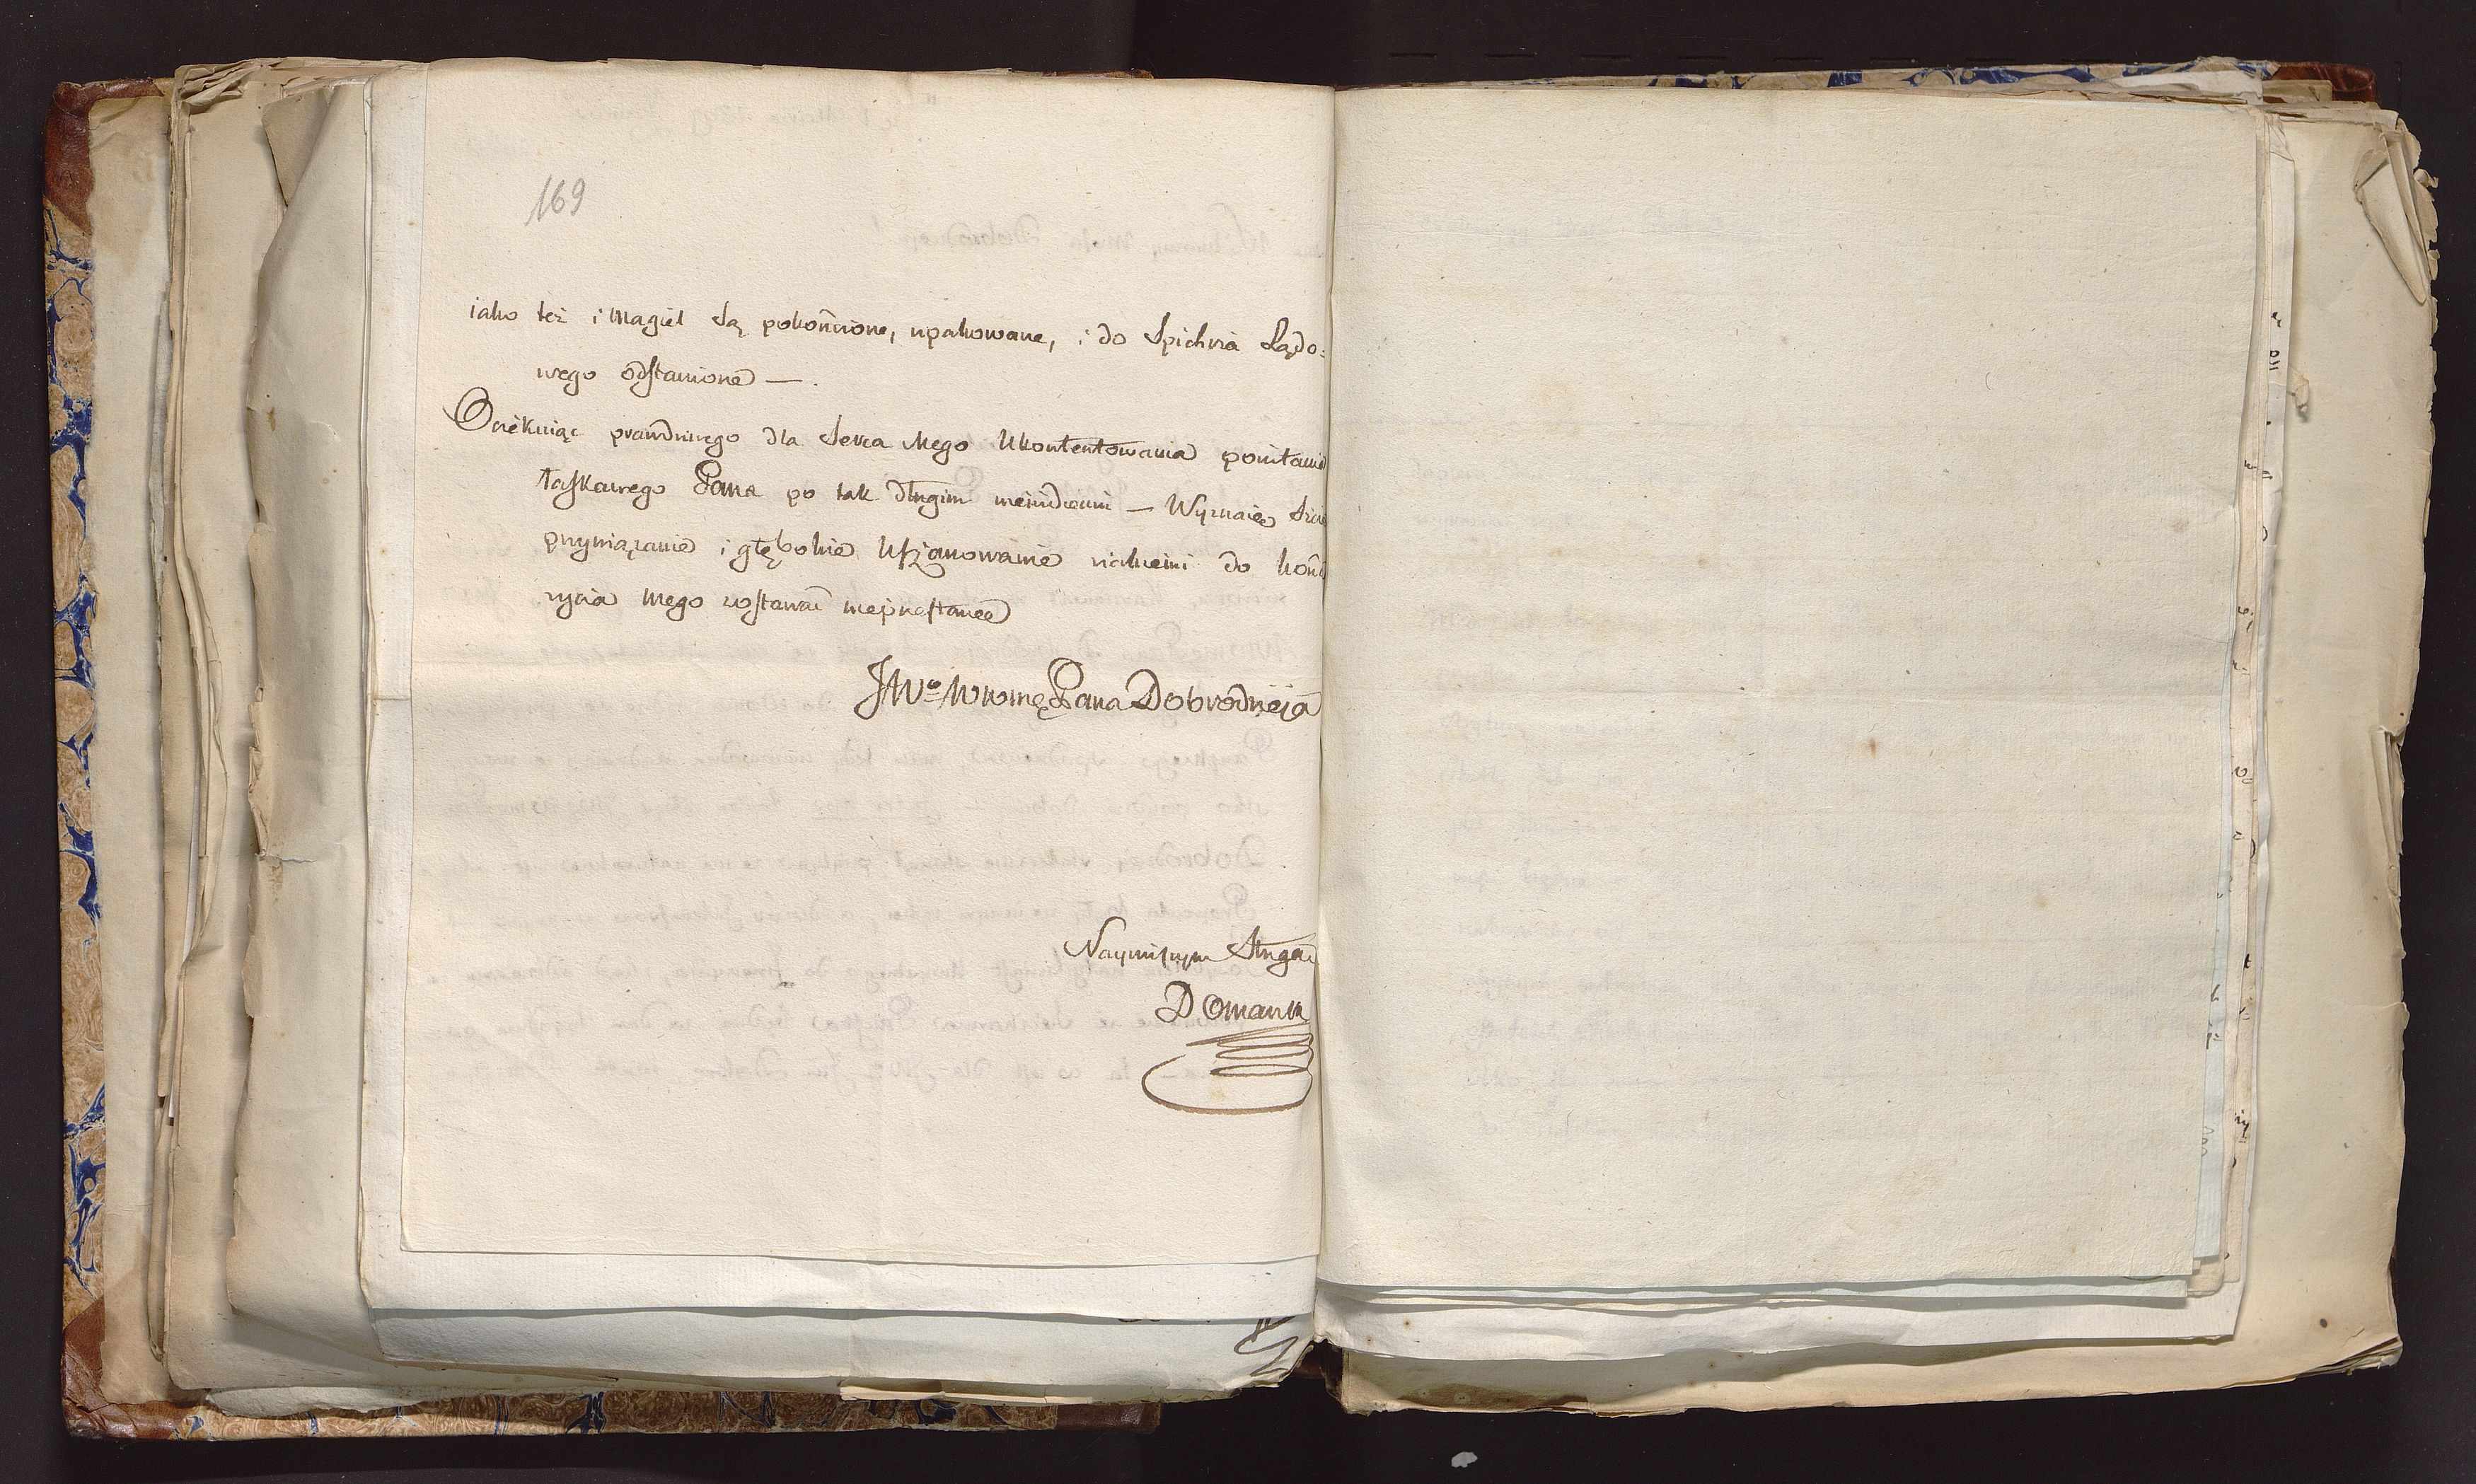 169
iako też i Magiel są pokończone, upakowane, i do Spichrza Lądo=
wego odstawione —.
Oczekuiąc prawdziwego dla Serca Mego Ukontentowania powitania
łaskawego Pana po tak długim niewidzeniu — Wyznaię
przywiązanie i głębokie Uszanowanie z iakiemi do końca
życia mego zostawać nieprzestanę
JWo WWMę Pana Dobrodzieja
Nayniższym Sługą